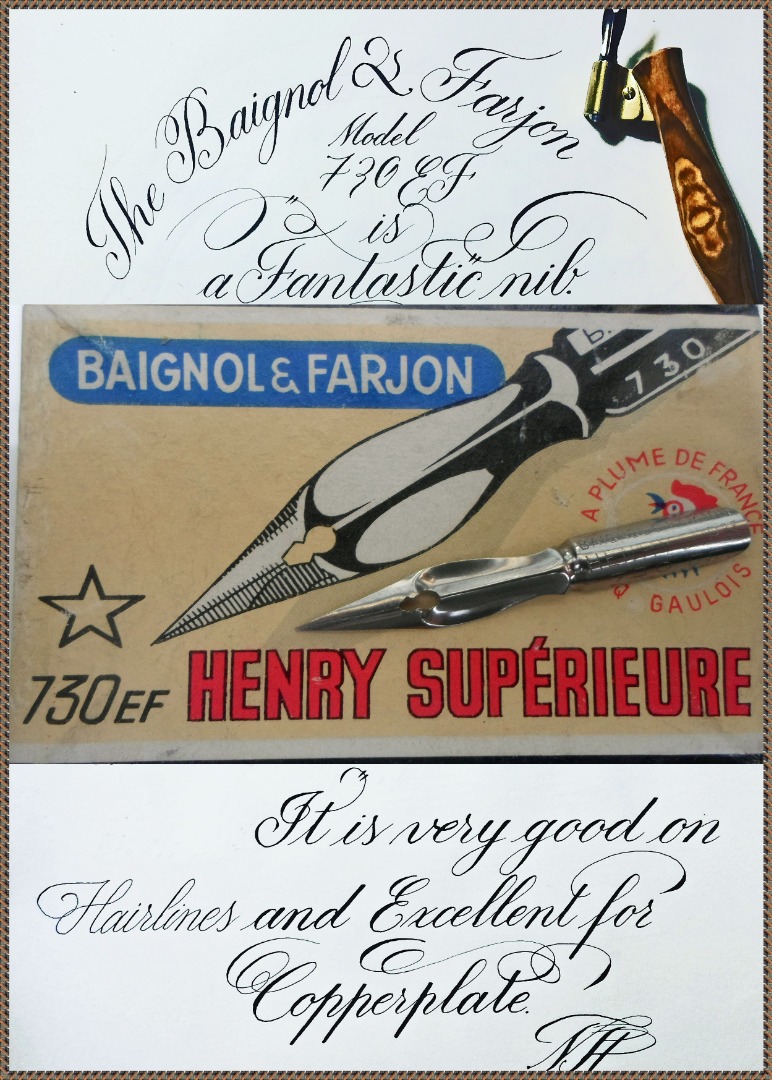 The Baignol & Farjon
Model
730 EF
is
a Fantastic nib.
BAIGNOL & FARJON
730
A PLUME DE FRANCE
GAULOIS
730 EF
HENRY SUPÉRIEURE
It is very good on
Hairlines and Excellent for
Copperplate.